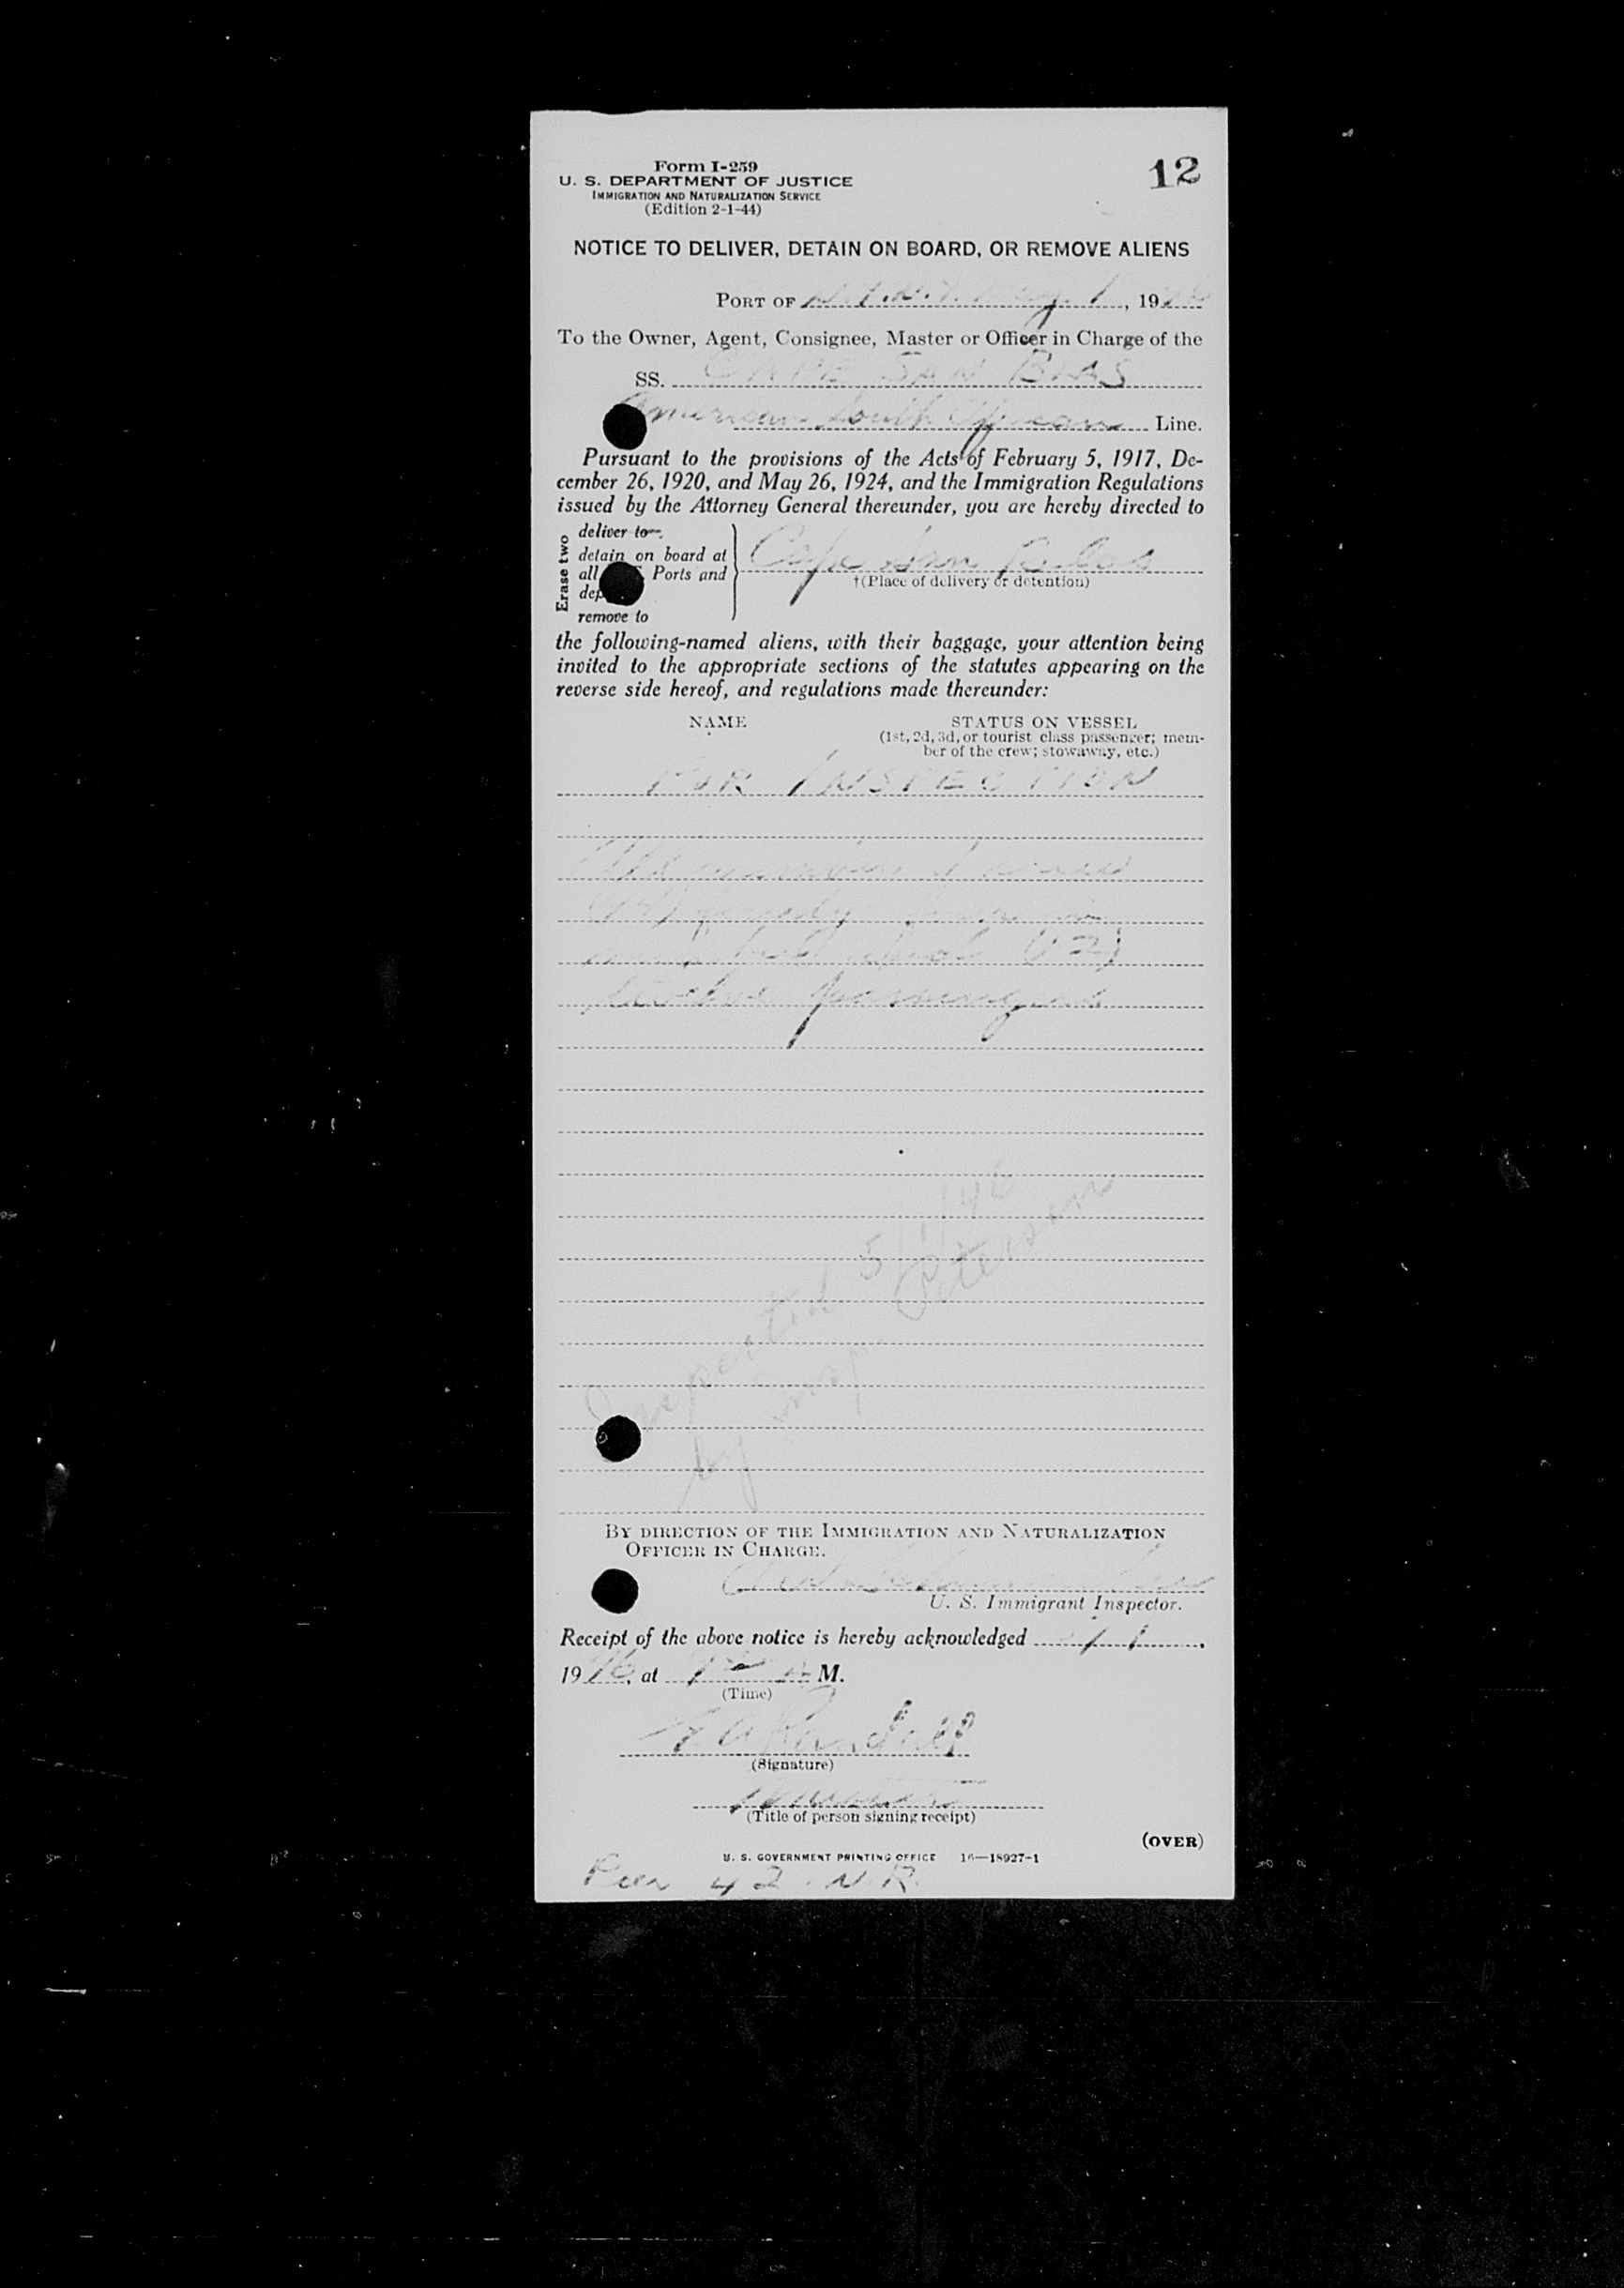 Form I-259
12
U. S. DEPARTMENT OF JUSTICE
IMMIGRATION AND NATURALIZATION SERVICE
(Edition 2-1-44)
NOTICE TO DELIVER, DETAIN ON BOARD, OR REMOVE ALIENS
PORT OF N.Y.N.Y. May 1, 1946
To the Owner, Agent, Consignee, Master or Officer in Charge of the
SS. CAPE SAN BLAS
American South African Line.
Pursuant to the provisions of the Acts of February 5, 1917, De-
cember 26, 1920, and May 26, 1924, and the Immigration Regulations
issued by the Attorney General thereunder, you are hereby directed to
Erase two
deliver to
detain on board at
all Ports and
dep
remove to
Cape San Blas
†(Place of delivery or detention)
the following-named aliens, with their baggage, your attention being
invited to the appropriate sections of the statutes appearing on the
reverse side hereof, and regulations made thereunder:
NAME
STATUS ON VESSEL
(1st, 2d, 3d, or tourist class passenger; mem-
ber of the crew; stowaway, etc.)
FOR INSPECTION
(12)
twelve passengers
Inspected 5/1/46
by Insp. Peterson
BY DIRECTION OF THE IMMIGRATION AND NATURALIZATION
OFFICER IN CHARGE.
U. S. Immigrant Inspector.
Receipt of the above notice is hereby acknowledged
1946, at M.
(Time)
(Signature)
(Title of person signing receipt)
(OVER)
U. S. GOVERNMENT PRINTING OFFICE 16—18927-1
Pier 42 N. R.